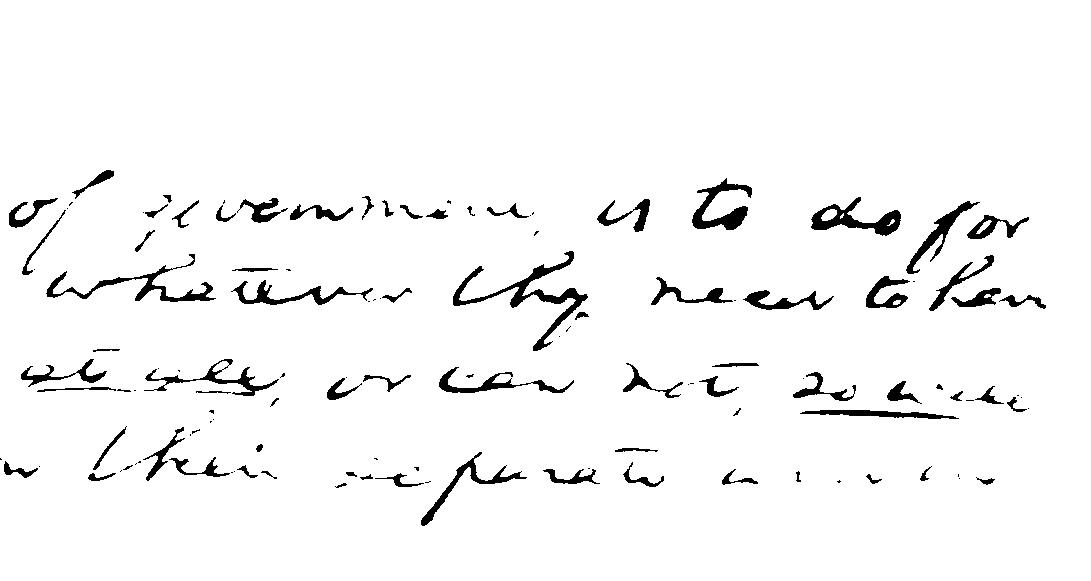 of government, is to do for
whatever they need to have
at all, or can not, so well
in their separate